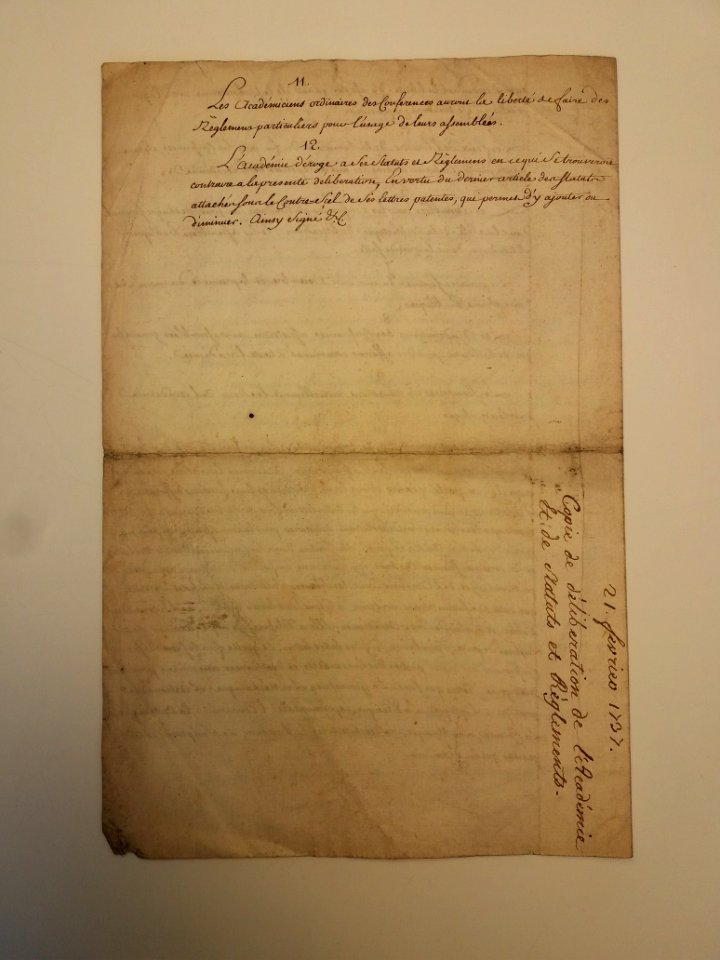 11.
Les Académiciens ordinaires des Conferences auront la liberté de faire des
Règlemens particuliers pour l'usage de leurs assemblées.
12.
L'Académie déroge a ses statuts et Règlemens en ce qui se trouveront
contraire a la presente déliberation, En vertu du dernier article des statuts
attachés sous le Contre-scel de ses lettres patentes, qui permet d'y ajouter ou
diminuer. Ainsy Signé &c
21. fevrier 1737.
Copie de déliberation de l'Académie
Et de Statuts et Règlements.